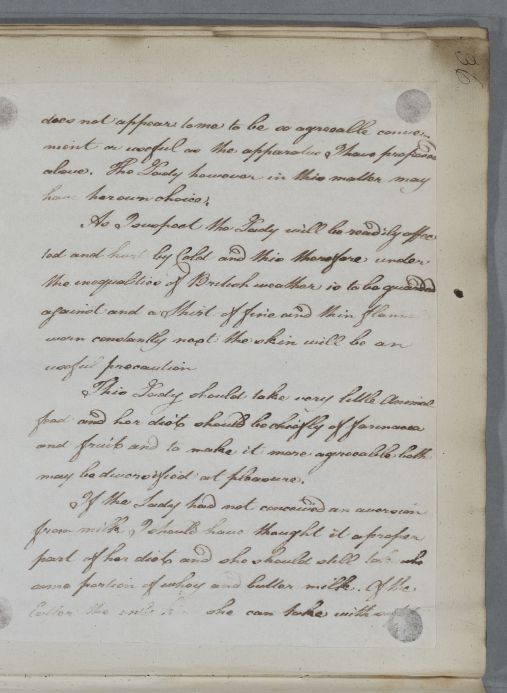 36
does not appear to me to be so agreeable conve-
nient or usefull as the apparatus I have proposed
above. The Lady however in this matter may
have her own choice.
As I suspect the Lady will be readily affec
ted and hurt by Cold and this therefore under
the inequalities of British weather is to be guarded
against and a Shirt of fine and thin flannel
worn constantly next the skin will be an
useful precaution
This Lady should take very little Animal
food and her diet should be chiefly of farinacea
and fruit and to make it more agreeable both
may be diversified at pleasure.
If the Lady had not conceived an aversion
from milk I should have thought it a proper
part of her diet and she should still take
some portion of whey and butter milk. Of the
latter the she can take without